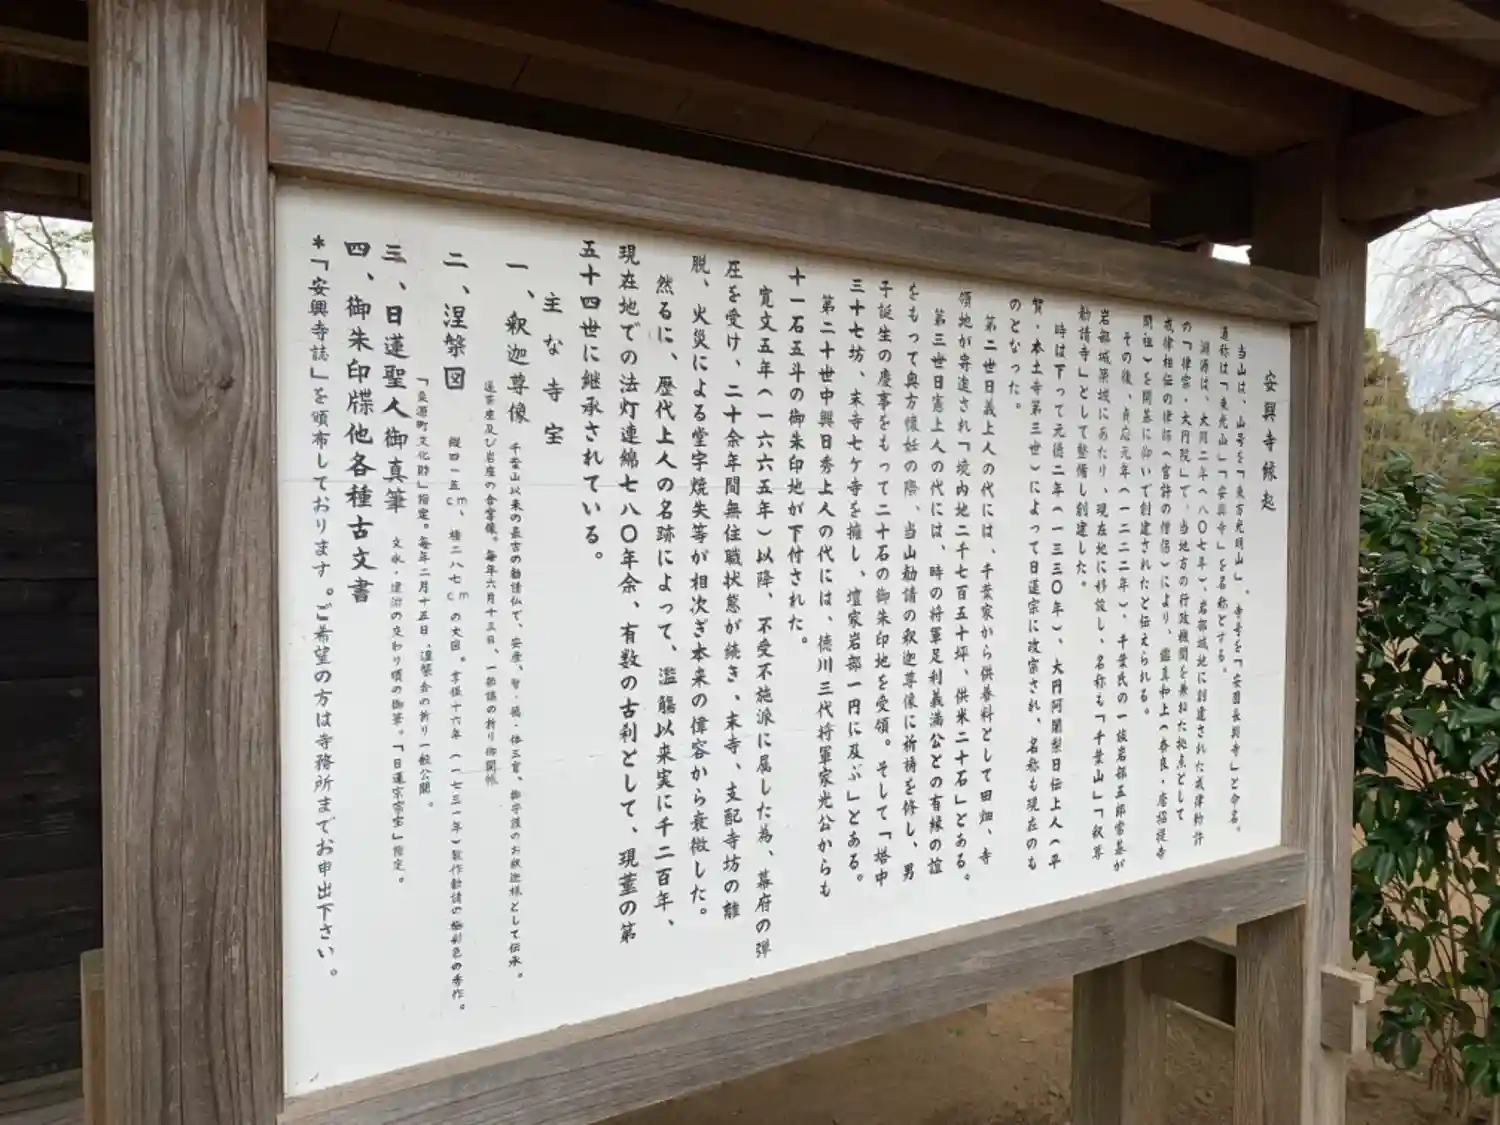 安興寺縁起
当山は、山号を「東方光明山」、寺号を「安国長興寺」と命名。
通称は「東光山」「安興寺」を名称とする。
淵源は、大同二年（八〇七年）、岩部城地に創建された戒律特許
の「律宗・大円院」で、当地方の行政機関を兼ねた拠点として
戒律相伝の律師（官許の僧侶）により、鑑真和上（奈良・唐招提寺
開祖）を開基に仰いで創建されたと伝えられる。
その後、貞応元年（一二二二年）、千葉氏の一族岩部五郎常基が
岩部城築城にあたり、現在地に移設し、名称も「千葉山」「釈尊
勧請寺」として整備し創建した。
時は下って元徳二年（一三三〇年）、大円阿闍梨日伝上人（平
賀・本土寺第三世）によって日蓮宗に改宗され、名称も現在のも
のとなった。
第二世日義上人の代には、千葉家から供養料として田畑、寺
領地が寄進され「境内地二千七百五十坪、供米二十石」とある。
第三世日憲上人の代には、時の将軍足利義満公との有縁の誼
をもって奥方懐妊の際、当山勧請の釈迦尊像に祈祷を修し、男
子誕生の慶事をもって二十石の御朱印地を受領。そして「塔中
三十七坊、末寺七ケ寺を擁し、壇家岩部一円に及ぶ」とある。
第二十世中興日秀上人の代には、徳川三代将軍家光公からも
十一石五斗の御朱印地が下付された。
寛文五年（一六六五年）以降、不受不施派に属した為、幕府の弾
圧を受け、二十余年間無住職状態が続き、末寺、支配寺坊の離
脱、火災による堂宇焼失等が相次ぎ本来の偉容から衰微した。
然るに、歴代上人の名跡によって、濫觴以来実に千二百年、
現在地での法灯連綿七八〇年余、有数の古刹として、現董の第
五十四世に継承されている。
主な寺宝
一、釈迦尊像 千葉山以来の最古の勧請仏で、安産、智・福・体三育、御守護のお釈迦様として伝承。
蓮華座及び岩座の合掌像。毎年六月十三日、一部講の祈り御開帳
二、涅槃図 縦四一五cm、横二八七cmの大図。享保十六年（一七三一年）製作勧請の極彩色の秀作。
「栗源町文化財」指定。毎年二月十五日、涅槃会の祈り一般公開。
三、日蓮聖人御真筆 文永・建治の交わり頃の御筆。「日蓮宗宗宝」指定。
四、御朱印牒他各種古文書
＊「安興寺誌」を頒布しております。ご希望の方は寺務所までお申出下さい。